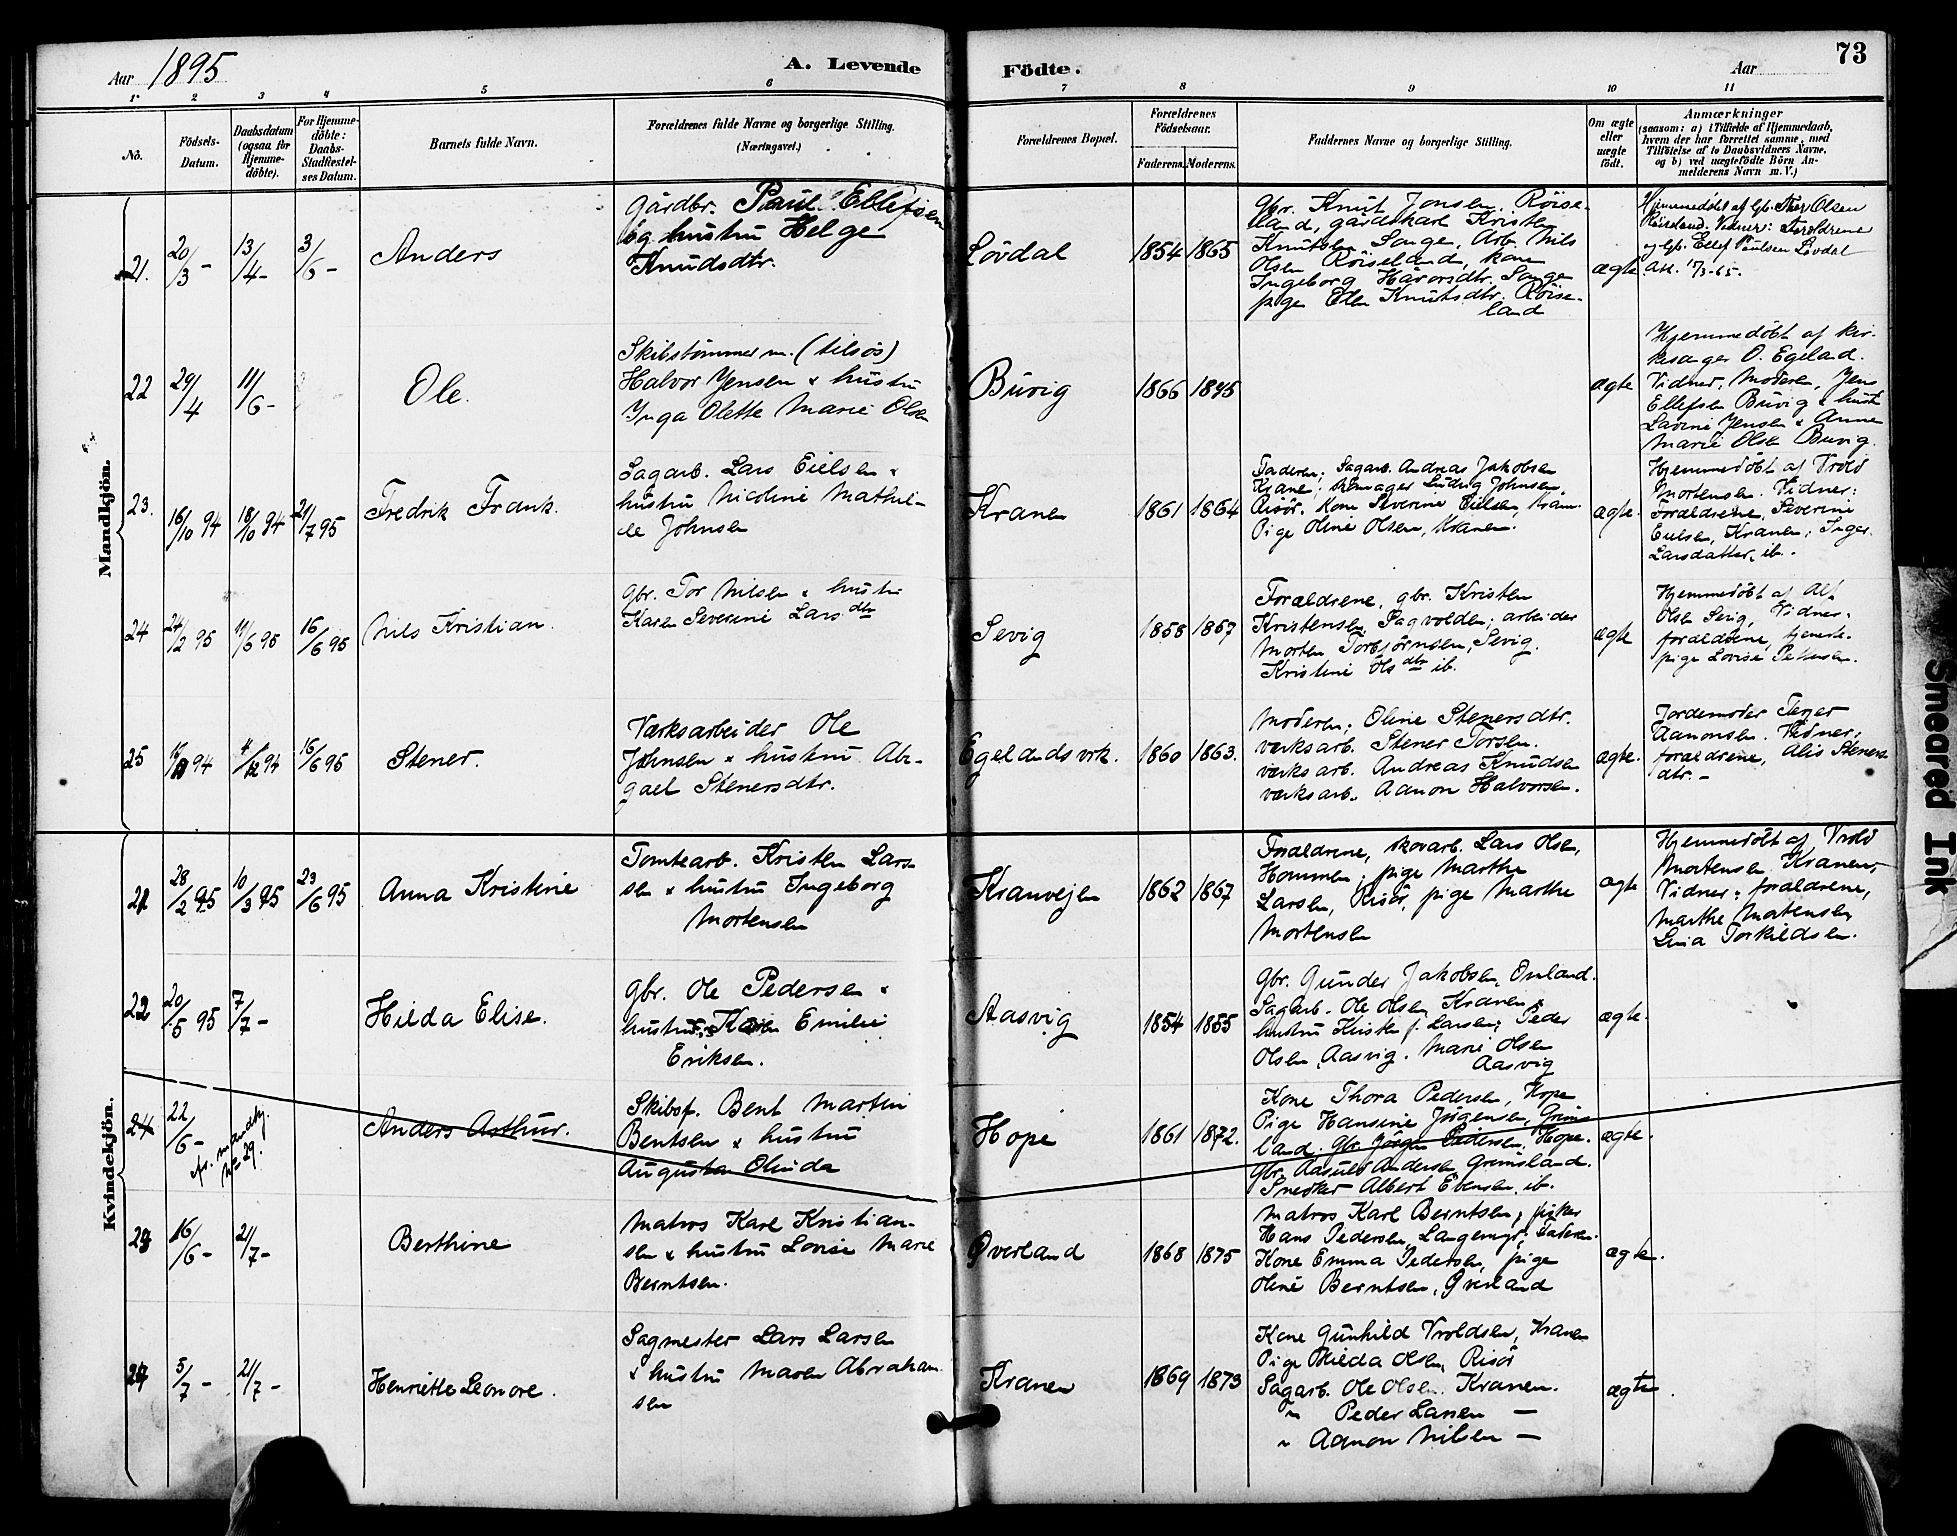 Aar 1895
A. Levende
Födte.
Aar
73
1 2 3 4 5 6 7 8 9 10 11
No.
Födsels-
Datum.
Daabsdatum
(ogsaa for
Hjemme-
döbte).
For Hjemme-
döbte:
Daabs-
Stadfæstel-
ses Datum.
Barnets fulde Navn.
Forældrenes fulde Navne og borgerlige Stilling.
(Næringsvei.)
Forældrenes Bopæl.
Forældrenes
Födselsaar.
Faderens. Moderens.
Faddernes Navne og borgerlige Stilling.
Om ægte
eller
uægte
født.
Anmærkninger
(saasom: a) i Tilfælde af Hjemmedaab,
hvem der har forrettet samme, med
Tilföielse af to Daabsvidners Navne,
og b) ved uægtefödte Börn An-
melderens Navn m. V.)
Mandkjön.
21. 20/3 - 13/4 - 3/6 -
Anders
Gårdbr. Paul Ellefsen
og hustru Helge
Knudsdtr.
Lövdal
1854 1865
Gbr. Knut Jonsen, Röise-
land, gårdskarl Kristen
Knutsen Songe, Arb. Nils
Olsen Röiseland, kone
Ingeborg Håvorsdtr. Songe
pige Ellen Knutsdtr. Röise-
land
ægte
Hjemmedöbt af Gb. Olsen
Röiseland. Vidner: Foreldrene
og Gb. Ellef Paulsen Lövdal
22 29/4 11/6 -
Ole.
Skibstömmerm. (tilsös)
Halvor Jensen & hustru
Inga Olette Marie Olsen
Buvig
1866 1875
ægte
Hjemmedöbt af kir-
kesanger O. Egelad.
Vidner, Moderen, Jens
Ellefsen Buvig & hustr
Lavine Jensen & Anne
Marie Olsen Buvig.
23. 16/10 94 18/10 94 21/7 95
Fredrik Frank.
Sagarb. Lars Eielsen &
hustru Nicoline Mathil-
de Johnsen
Kranen
1861 1864
Faderen; Sagarb. Andreas Jakobsen
Krane; skomager Ludvig Johnsen
Risör. Kone Severine Eielsen, Kran.
Pige Oline Olsen, Kranen.
ægte.
Hjemmedöbt af Vrold
Mortensen. Vidner:
Forældrene, Severine
Eielsen, Kranen; Inger
Larsdatter, ib.
24 24/2 95 11/6 95 16/6 95
Nils Kristian.
Gbr. Tor Nilsen & hustru
Karen Severine Larsdtr
Sevig
1858 1867
Forældrene, gbr. Kristen
Kristensen Sagvolden; arbeider
Morten Torbjørnsen, Sevig.
Kristine Olsdtr ib.
ægte
Hjemmedöbt af Alf
Olsen Sevig, Vidner:
forældrene, tjeneste-
pige Lovise Pettersen.
25 94 4/12 94 16/6 95
Stener.
Værksarbeider Ole
Johnsen & hustru Abi-
gael Stenersdtr.
Egelands vrk.
1860 1863.
Moderen; Oline Stenersdtr.
værksarb. Stener Torsen.
værksarb. Andreas Knudsen
værksarb. Aanon Halvorsen.
ægte.
Jordemoder Terjer
Aanonsen. Vidner:
forældrene, Alis Steners-
dtr. -
Kvindekjön.
21 28/2 95 10/3 95 23/6 95
Anna Kristine
Tomtearb. Kristen Lars-
sen & hustru Ingeborg
Mortensen
Kranvejen
1862 1867
Forældrene, skovarb. Lars Olsen,
Hommen; pige Marthe
Larsen, Risör, pige Marthe
Mortensen
ægte
Hjemmedöbt af Vrold
Mortensen Kranen,
Vidner: forældrene,
Marthe Mortensen,
Lina Torkildsen.
22 20/5 95 7/7 -
Hilda Elise.
Gbr. Ole Pedersen &
hustru Karen Emilie
Eriksen.
Aasvig
1854 1855
Gbr. Gunder Jakobsen, Omland.
Sagarb. Ole Olsen Kranen &
hustru Kirsten f. Larsen; Peder
Olsen, Aasvig. Marie Olsen
Aasvig
ægte.
24 22/6 -
No 29.
Anders Arthur.
Skibsf. Bent Martin
Bentsen & hustru
Augusta Olinda
Hope
1861 1872.
Kone Thora Pedersen, Hope
Pige Hansine Jørgensen, Grims-
land. Gbr. Jörgen Pedersen, Hope.
Gbr. Aasuld Andersen Grimsland.
Snedker Albert Evensen, ib.
ægte.
23 16/6 - 21/7 -
Berthine
Matros Karl Kristian-
sen & hustru Lovise Marie
Berntsen.
Øverland
1868 1875
Matros Karl Berntsen; fisker
Hans Pedersen, Langemyr; Faderen.
Kone Emma Pedersen, pige
Oline Berntsen, Øverland
ægte.
24 5/7 - 21/7 -
Henriette Leonore.
Sagmester Lars Larsen
& hustru Maren Abraham-
sen
Kranen
1869 1873
Kone Gunhild Vroldsen, Kranen
Pige Hilda Olsen, Risör
Sagarb. Ole Olsen. Kranen.
" Peder Larsen -
" Aanon Nilsen -
ægte.
Smeared Ink